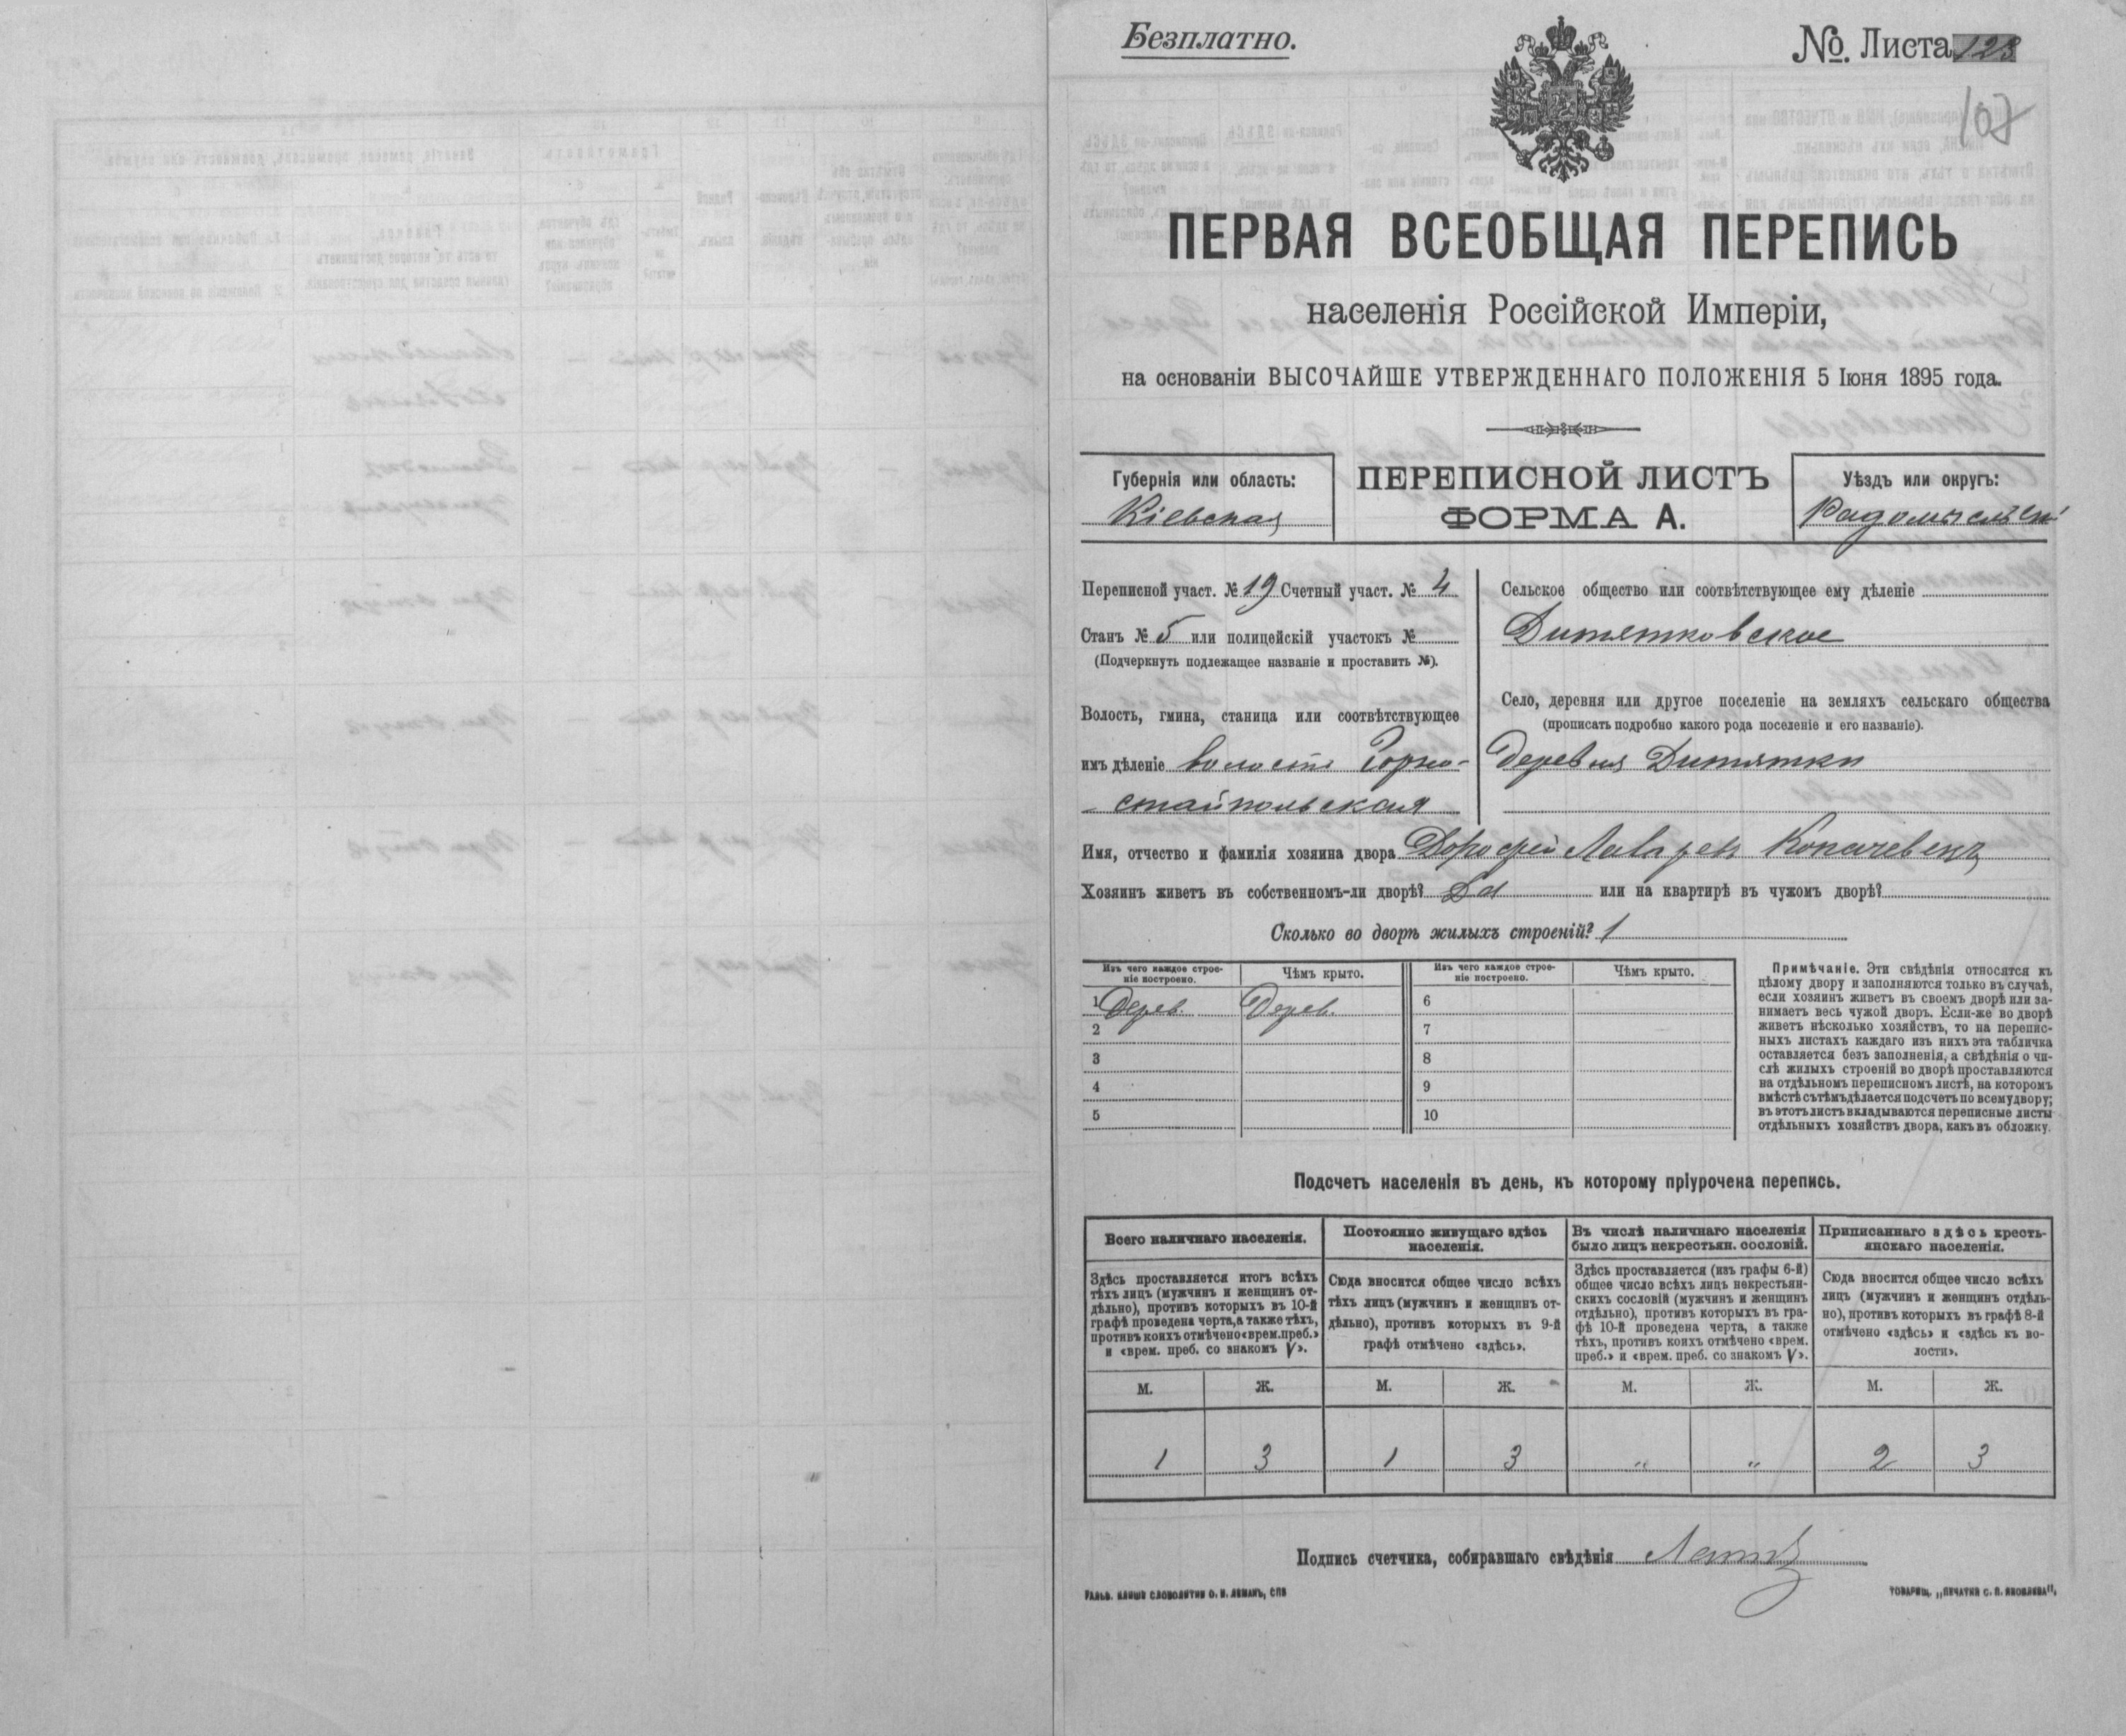 Безплатно.
№ Листа 123
107
ПЕРВАЯ ВСЕОБЩАЯ ПЕРЕПИСЬ
населенія Россійской Имперіи,
на основаніи ВЫСОЧАЙШЕ УТВЕРЖДЕННАГО ПОЛОЖЕНІЯ 5 Іюня 1895 года.
Губернія или область:
Кіевская
ПЕРЕПИСНОЙ ЛИСТЪ
ФОРМА А.
Уѣздъ или округъ:
Радомысльскій
Переписной участ. № 19 Счетный участ. № 4
Станъ № 5 или полицейскій участокъ №
(Подчеркнуть подлежащее названіе и проставить №).
Волость, гмина, станица или соотвѣтствующее
имъ дѣленіе волость Горно-
стайпольская
Сельское общество или соотвѣтствующее ему дѣленіе
Дитятковское
Село, деревня или другое поселеніе на земляхъ сельскаго общества
(прописать подробно какого рода поселеніе и его названіе).
деревня Дитятки
Имя, отчество и фамилія хозяина двора Дорофей Лазарев Копачевецъ
Хозяинъ живетъ въ собственномъ-ли дворѣ? Да или на квартирѣ въ чужомъ дворѣ?
Сколько во дворѣ жилыхъ строеній? 1
Изъ чего каждое строе-
ніе построено.
Чѣмъ крыто.
Изъ чего каждое строе-
ніе построено.
Чѣмъ крыто.
1 Дерев. Дерев. 6
2 7
3 8
4 9
5 10
Примѣчаніе. Эти свѣдѣнія относятся къ
цѣлому двору и заполняются только въ случаѣ,
если хозяинъ живетъ въ своемъ дворѣ или за-
нимаетъ весь чужой дворъ. Если-же во дворѣ
живетъ нѣсколько хозяйствъ, то на перепис-
ныхъ листахъ каждаго изъ нихъ эта табличка
оставляется безъ заполненія, а свѣдѣнія о чи-
слѣ жилыхъ строеній во дворѣ проставляются
на отдѣльномъ переписномъ листѣ, на которомъ
вмѣстѣ съ тѣмъ дѣлается подсчетъ по всему двору;
въ этотъ листъ вкладываются переписные листы
отдѣльныхъ хозяйствъ двора, какъ въ обложку.
Подсчетъ населенія въ день, къ которому пріурочена перепись.
Всего наличнаго населенія.
Здѣсь проставляется итогъ всѣхъ
тѣхъ лицъ (мужчинъ и женщинъ от-
дѣльно), противъ которыхъ въ 10-й
графѣ проведена черта, а также тѣхъ,
противъ коихъ отмѣчено «врем. преб.»
и «врем. преб. со знакомъ V».
Постоянно живущаго здѣсь
населенія.
Сюда вносится общее число всѣхъ
тѣхъ лицъ (мужчинъ и женщинъ от-
дѣльно), противъ которыхъ въ 9-й
графѣ отмѣчено «здѣсь».
Въ числѣ наличнаго населенія
было лицъ некрестьян. сословій.
Здѣсь проставляется (изъ графы 6-й)
общее число всѣхъ лицъ некрестьян-
скихъ сословій (мужчинъ и женщинъ
отдѣльно), противъ которыхъ въ гра-
фѣ 10-й проведена черта, а также
тѣхъ, противъ коихъ отмѣчено «врем.
преб.» и «врем. преб. со знакомъ V».
Приписаннаго здѣсь кресть-
янскаго населенія.
Сюда вносится общее число всѣхъ
лицъ (мужчинъ и женщинъ отдѣль-
но), противъ которыхъ въ графѣ 8-й
отмѣчено «здѣсь» и «здѣсь къ во-
лости».
М. Ж. М. Ж. М. Ж. М. Ж.
1 3 1 3 " " 2 3
Подпись счетчика, собиравшаго свѣдѣнія
ГАЛЬВ. КЛИШЕ СЛОВОЛИТНИ О. И. ЛЕМАНЪ, СПБ
ТОВАРИЩ. „ПЕЧАТНЯ С. П. ЯКОВЛЕВА".